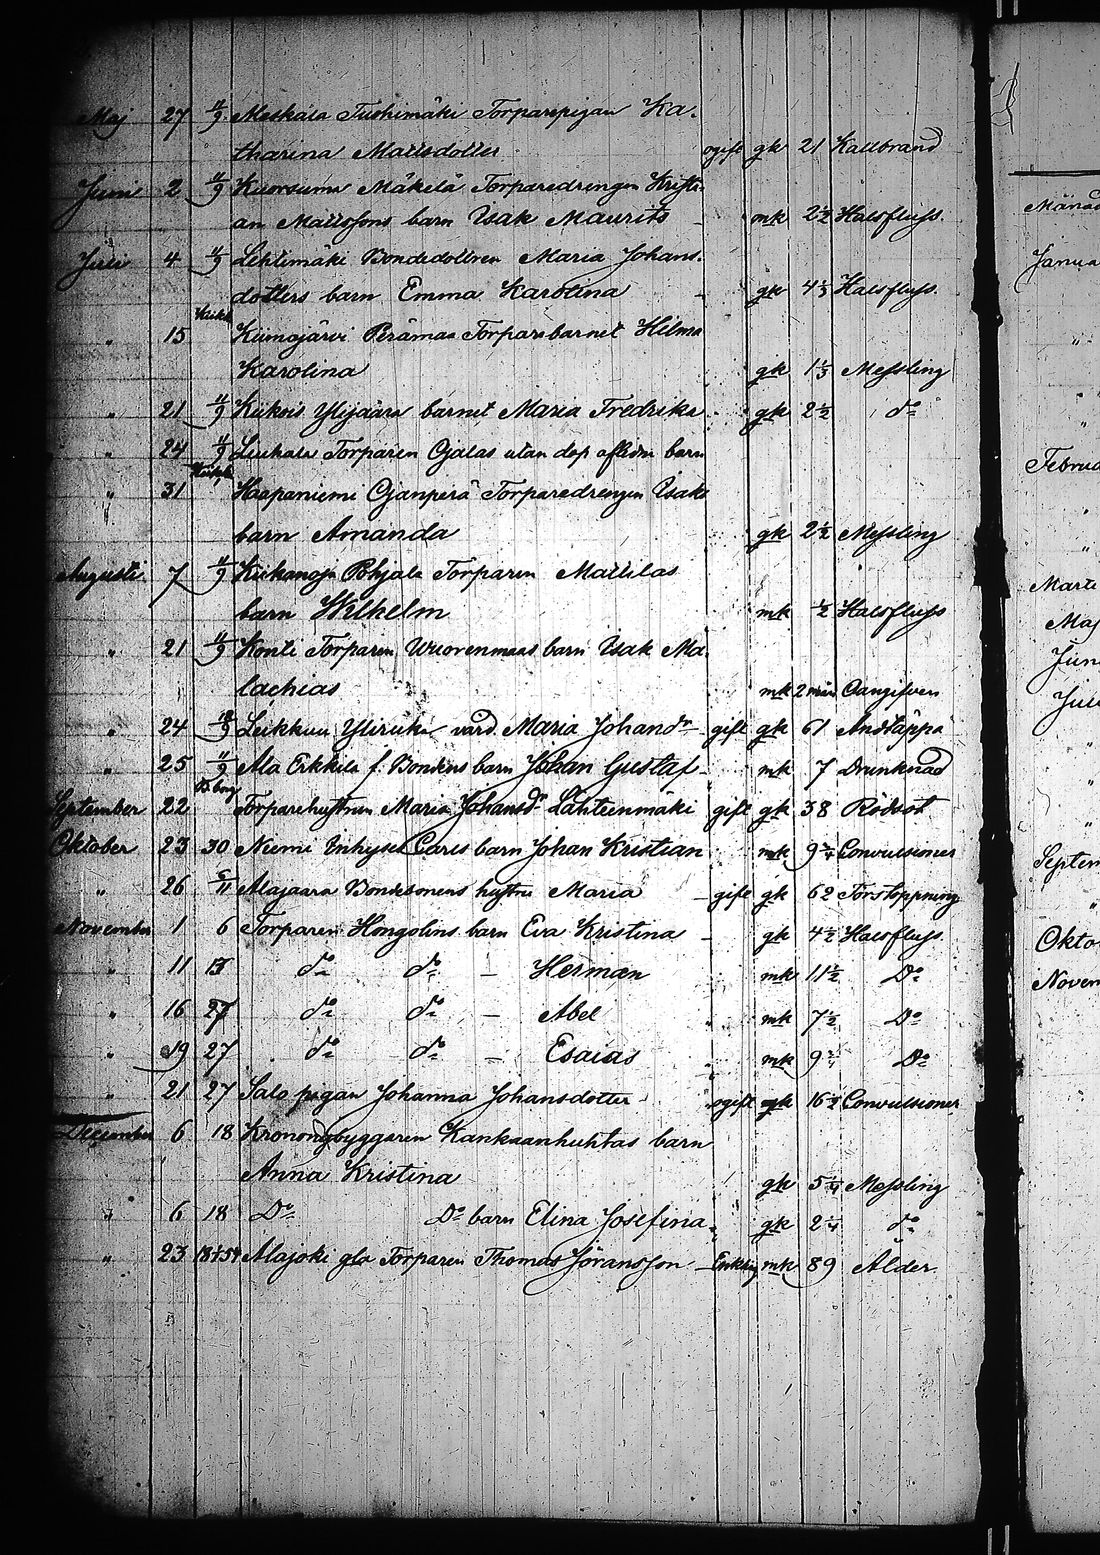 Maj 27 11/9 Meskala Tuohimäki Torparepigan Ka-
tharina Mattsdotter ogift gk 21 Kallbrand
Juni 2 11/9 Kuorsuma Mäkelä Torparedrengen Kristi-
an Mattssons barn Isak Maurits mk 2 1/2 Halsfluss.
Juli 4 11/9 Lehtimäki Bondedottren Maria Johans-
dotters barn Emma Karolina gk 4 1/3 Halsfluss.
" 15 Kiimajärvi Perämaa Torparebarnet Hilma
Karolina gk 1 1/3 Messling
" 21 11/9 Kiikois Ylijaara barnet Maria Fredrika gk 2 1/2 do
" 24 11/9 Liukala Torparen Ojalas utan dop aflidne barn
" 31 Haapaniemi Ojanperä Torparedrengen Isaks
barn Amanda gk 2 1/2 Messling
Augusti 7 11/9 Kiikanoja Pohjala Torparen Mattilas
barn Wilhelm mk 1/2 Halsfluss
" 21 11/9 Konti Torparen Wuorenmaas barn Isak Ma-
lachias mk 2 mån Oangifven
" 24 18/9 Leikkuu vård. Maria Johansdr gift gk 61 Andtäppa
" 25 11/9 Ala Erkkila f. Bondens barn Johan Gustaf mk 7 Drunknad
September 22 Torparehustrun Maria Johansdr Lähteenmäki gift gk 38 Rödsot
Oktober 23 30 Niemi Inhyses Carls barn Johan Kristian mk 9 3/4 Convulsioner
" 26 6/11 Alajaara Bondesonens hustru Maria gift gk 62 Förstoppning
November 1 6 Torparen Hongolins barn Eva Kristina gk 4 1/2 Halsfluss.
" 11 13 do do – Herman mk 11 1/2 Do
" 16 27 do do – Abel mk 7 1/2 Do
" 19 27 do do – Esaias mk 9 3/4 Do
" 21 27 Salo pigan Johanna Johansdotter ogift gk 16 1/2 Convulsioner
December 6 18 Kronongbyggaren Kankaanhuhtas barn
Anna Kristina gk 5 1/4 Messling
" 6 18 Do Do barn Elina Josefina gk 2 1/4 do
" 23 Alajoki gla Torparen Thomas Jöransson Enkling mk 89 Ålder.
Månad
Janua
"
"
Februa
"
"
Marti
Maj
Juni
Juli
"
"
"
Septem
"
Okto
Novem